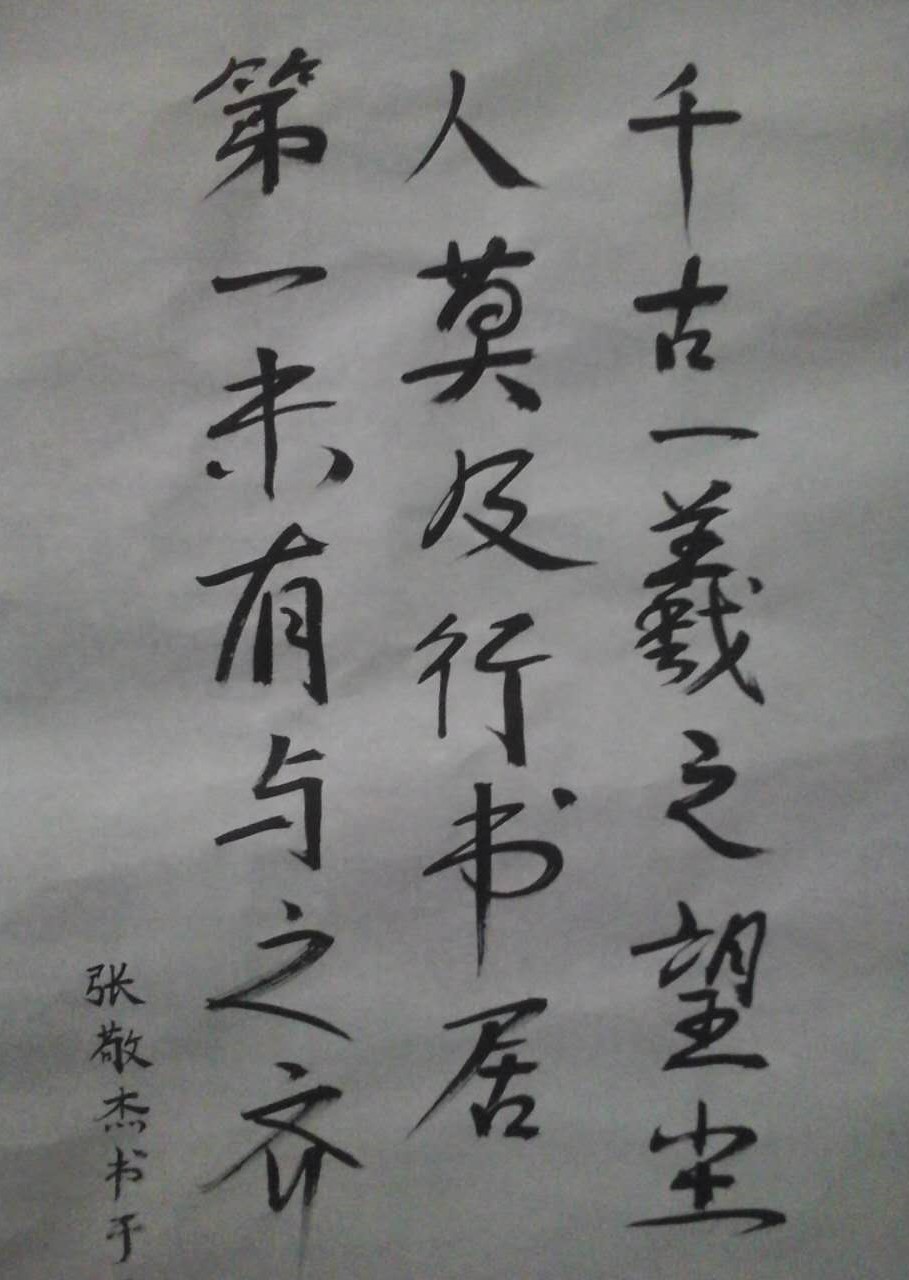 千古一羲之望尘
人莫及行书居
第一未有与之齐
张敬杰书于